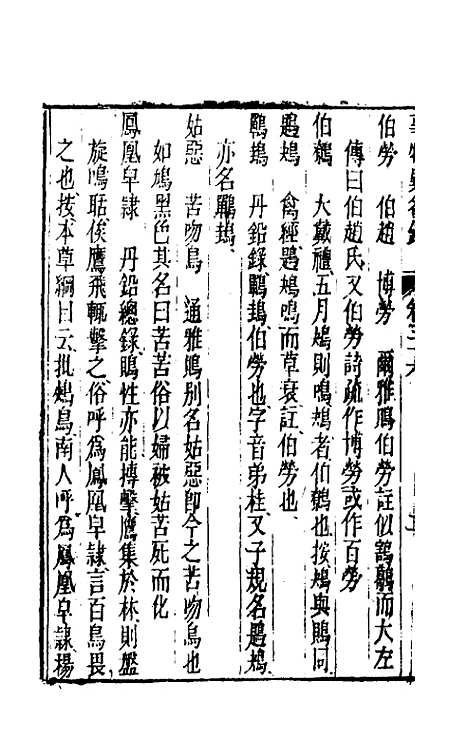 伯勞　伯趙　博勞　爾雅鵙伯勞註似鶷鶡而大左
傳曰伯趙氏又伯勞詩疏作博勞或作百勞
伯鷯　大戴禮五月鴂則鳴鴂者伯鷯也按鴂與鵙同
鶗鴂　禽經鶗鴂鳴而草衰註伯勞也
鷤䳏　丹鉛錄鷤䳏伯勞也字音弟桂又子規名鶗鴂
亦名鷤䳏
姑惡　苦吻鳥　通雅鵙別名姑惡卽今之苦吻鳥也
如鳩黑色其名曰苦苦俗以婦被姑苦死而化
鳳凰皁隸　丹鉛總錄鵙性亦能搏擊鷹集於林則盤
旋鳴聒俟鷹飛輒擊之俗呼爲鳳凰皁隸言百鳥畏
之也按本草綱目云批鴂鳥南人呼爲鳳凰皁隸楊